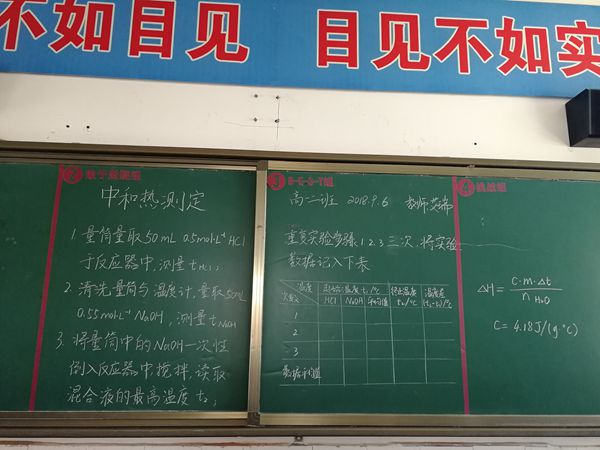 不如目见 目见不如实
2 敢于超越组
中和热测定
1. 量筒量取50mL 0.5mol·L⁻¹ HCl
于反应器中,测量tHCl;
2. 清洗量筒与温度计,量取50mL
0.55mol·L⁻¹ NaOH,测量tNaOH
3. 将量筒中的NaOH一次性
倒入反应器中搅拌,读取
混合液的最高温度t₂;
3 B·E·S·T组
高二二班 2018.9.6 教师
重复实验步骤1.2.3三次,将实验
数据记入下表
温度 次数 起始温度t₁/℃ 终止温度t₂/℃ 温度差(t₂-t₁)/℃
HCl NaOH 平均值
1
2
3
数据平均值
4 挑战组
ΔH = c·m·Δt / n H₂O
C = 4.18J/(g·℃)